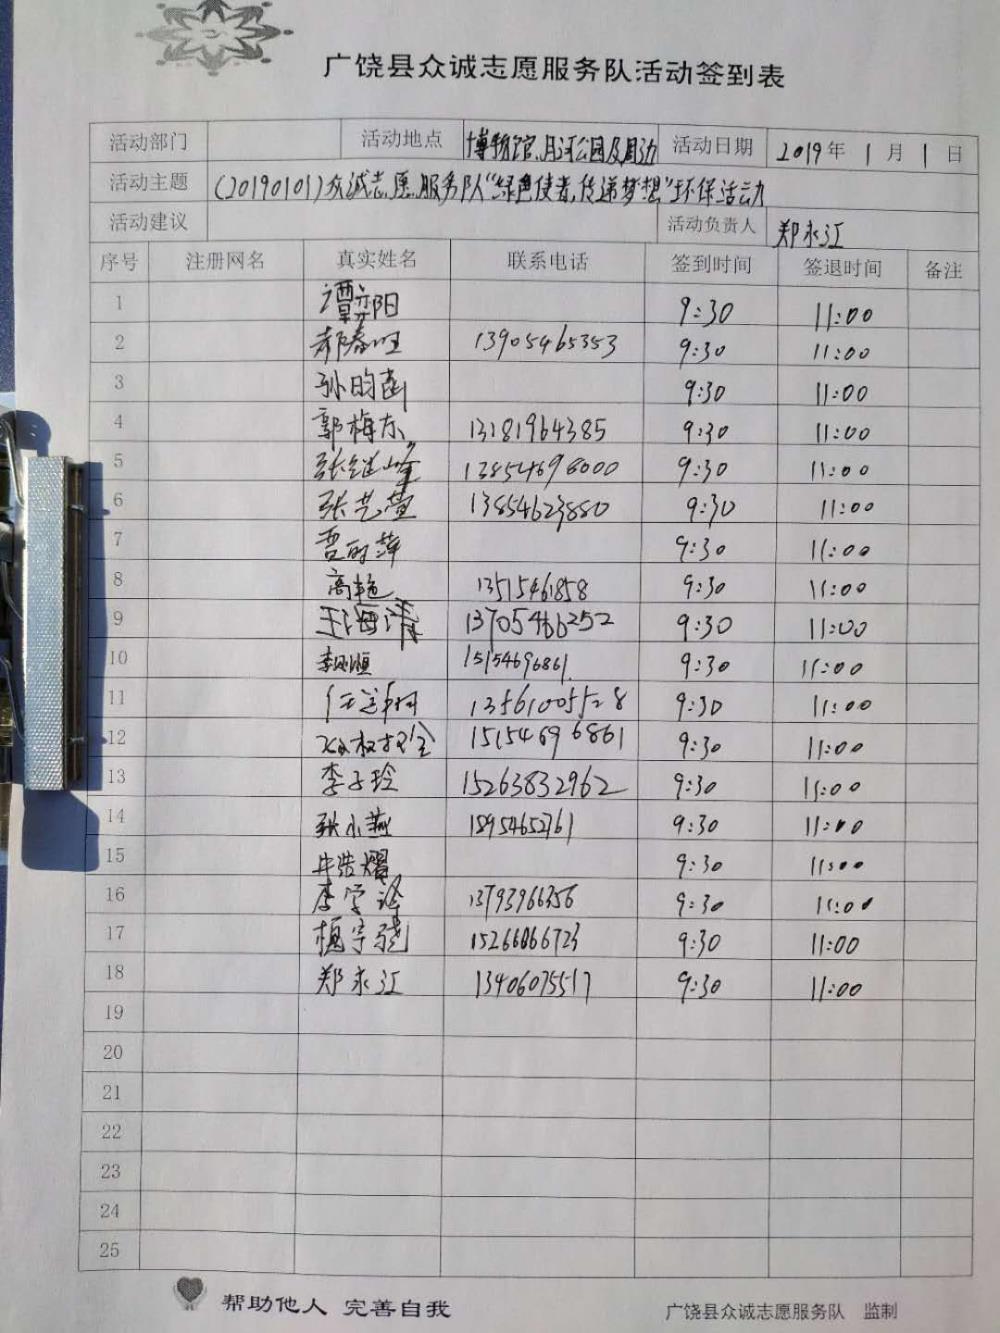 广饶县众诚志愿服务队活动签到表
活动部门 活动地点 博物馆、月河公园及周边 活动日期 2019年 1 月 1 日
活动主题 (20190101)众诚志愿服务队“绿色使者,传递梦想”环保活动
活动建议 活动负责人 郑永江
序号 注册网名 真实姓名 联系电话 签到时间 签退时间 备注
1 谭弈阳 9:30 11:00
2 13905465353 9:30 11:00
3 孙昀菡 9:30 11:00
4 郭梅东 13181964385 9:30 11:00
5 张继峰 13854696000 9:30 11:00
6 张艺萱 13854623880 9:30 11:00
7 9:30 11:00
8 高艳 13515461858 9:30 11:00
9 王海清 13705466252 9:30 11:00
10 15154696861 9:30 11:00
11 13561005528 9:30 11:00
12 15154696861 9:30 11:00
13 李子玲 15263832962 9:30 11:00
14 张小燕 18954652761 9:30 11:00
15 9:30 11:00
16 李学 13793966356 9:30 11:00
17 15266066723 9:30 11:00
18 郑永江 13406075517 9:30 11:00
19
20
21
22
23
24
25
帮助他人 完善自我
广饶县众诚志愿服务队 监制